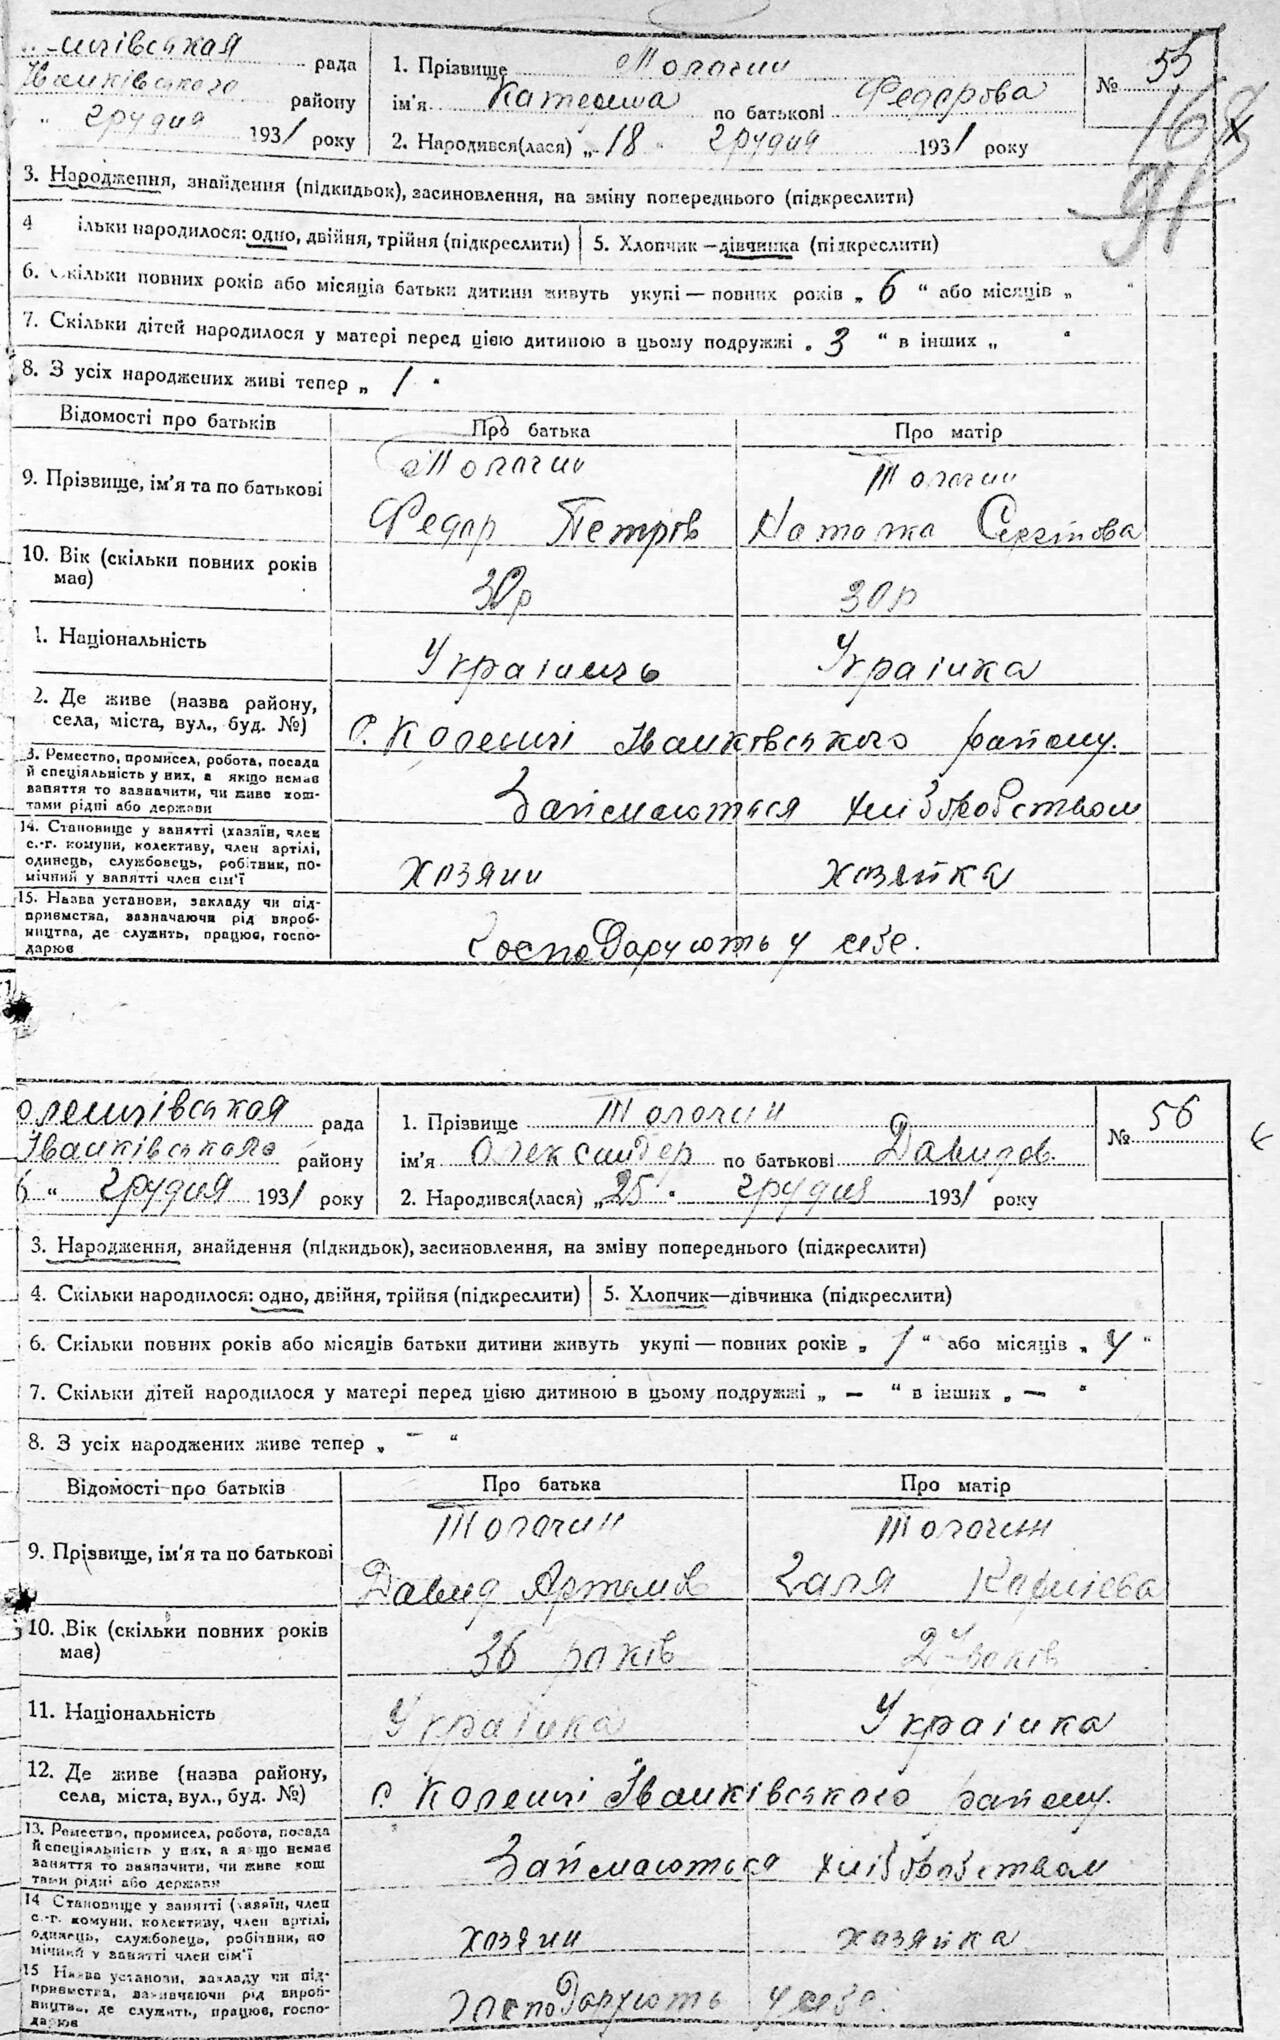 рада
Іванківського району
" грудня 1931 року
1. Прізвище Толочин
ім'я Катерина по батькові Федорова
2. Народився(лася) „ 18 " грудня 1931 року
№ 55
3. Народження, знайдення (підкидьок), засиновлення, на зміну попереднього (підкреслити)
4 ільки народилося: одно, двійня, трійня (підкреслити)
5. Хлопчик—дівчинка (підкреслити)
6. Скільки повних років або місяців батьки дитини живуть укупі — повних років „ 6 “ або місяців „ “
7. Скільки дітей народилося у матері перед цією дитиною в цьому подружжі „ 3 “ в інших „ “
8. З усіх народжених живі тепер „ 1 “
Відомості про батьків
Про батька
Про матір
9. Прізвище, ім'я та по батькові
Толочин
Толочин
Федор Петрів
Наталка Сергіїова
10. Вік (скільки повних років
має)
30р
30р
1. Національність
Украінець
Украінка
2. Де живе (назва району,
села, міста, вул., буд. №)
с. Коленці Іванківського району.
3. Ремество, промисел, робота, посада
й спеціяльність у них, а якщо немає
заняття то зазначити, чи живе кош-
тами рідні або держави
Займаються хліборобством
14. Становище у занятті (хазяїн, член
с.-г. комуни, колективу, член артілі,
одинець, службовець, робітник, по-
мічний у занятті член сім'ї
хозяин
хозяйка
15. Назва установи, закладу чи під-
приємства, зазначаючи рід вироб-
ництва, де служить, працює, госпо-
дарює
Господарують у себе.
оленцівськая рада
Іванківського району
6 “ грудня 1931 року
1. Прізвище Толочин
ім'я Олександер по батькові Давидов.
2. Народився(лася) „ 25 " грудня 1931 року
№ 56
3. Народження, знайдення (підкидьок), засиновлення, на зміну попереднього (підкреслити)
4. Скільки народилося: одно, двійня, трійня (підкреслити)
5. Хлопчик—дівчинка (підкреслити)
6. Скільки повних років або місяців батьки дитини живуть укупі — повних років „ 1 “ або місяців „ 4 “
7. Скільки дітей народилося у матері перед цією дитиною в цьому подружжі „ — “ в інших „ — “
8. З усіх народжених живе тепер „ — “
Відомості про батьків
Про батька
Про матір
9. Прізвище, ім'я та по батькові
Толочин
Толочин
Давид Артемів
Галя
10. Вік (скільки повних років
має)
36 років
років
11. Національність
Украінка
Украінка
12. Де живе (назва району,
села, міста, вул., буд. №)
с. Коленці Іванківського району.
13. Ремество, промисел, робота, посада
й спеціяльність у них, а якщо немає
заняття то зазначити, чи живе кош
тами рідні або держави
Займаються хліборобством
14 Становище у занятті (хазяїн, член
с.-г. комуни, колективу, член артілі,
одинець, службовець, робітник, по
мічний у занятті член сім'ї
хозяин
хозяйка
15 Назва установи, закладу чи під-
приємства, зазначаючи рід вироб-
ництва, де служить, працює, госпо-
дарює
Господарують у себе.